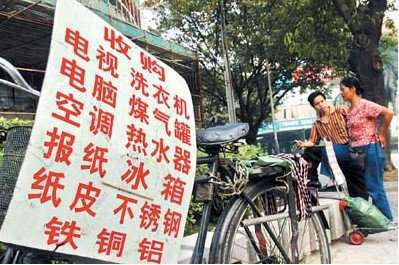 收购
电视 洗衣机
电脑 煤气罐
空调 热水器
报纸 冰箱
纸皮 不锈钢
铁 铜 铝